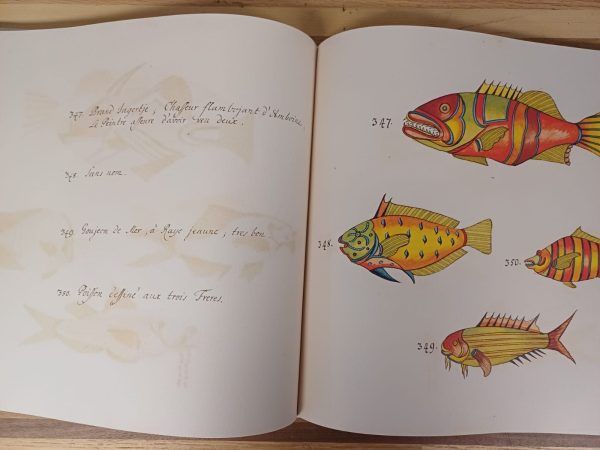 347. Brand Jagertje, Chasseur flamboijant d'Amboine.
Le Peintre asseure d'avoir veu deux.
348. Sans nom.
349. Goujeon de Mer, à Raye jeaune, tres bon.
350. Poisson dessiné aux trois Freres.
347.
348.
350.
349.